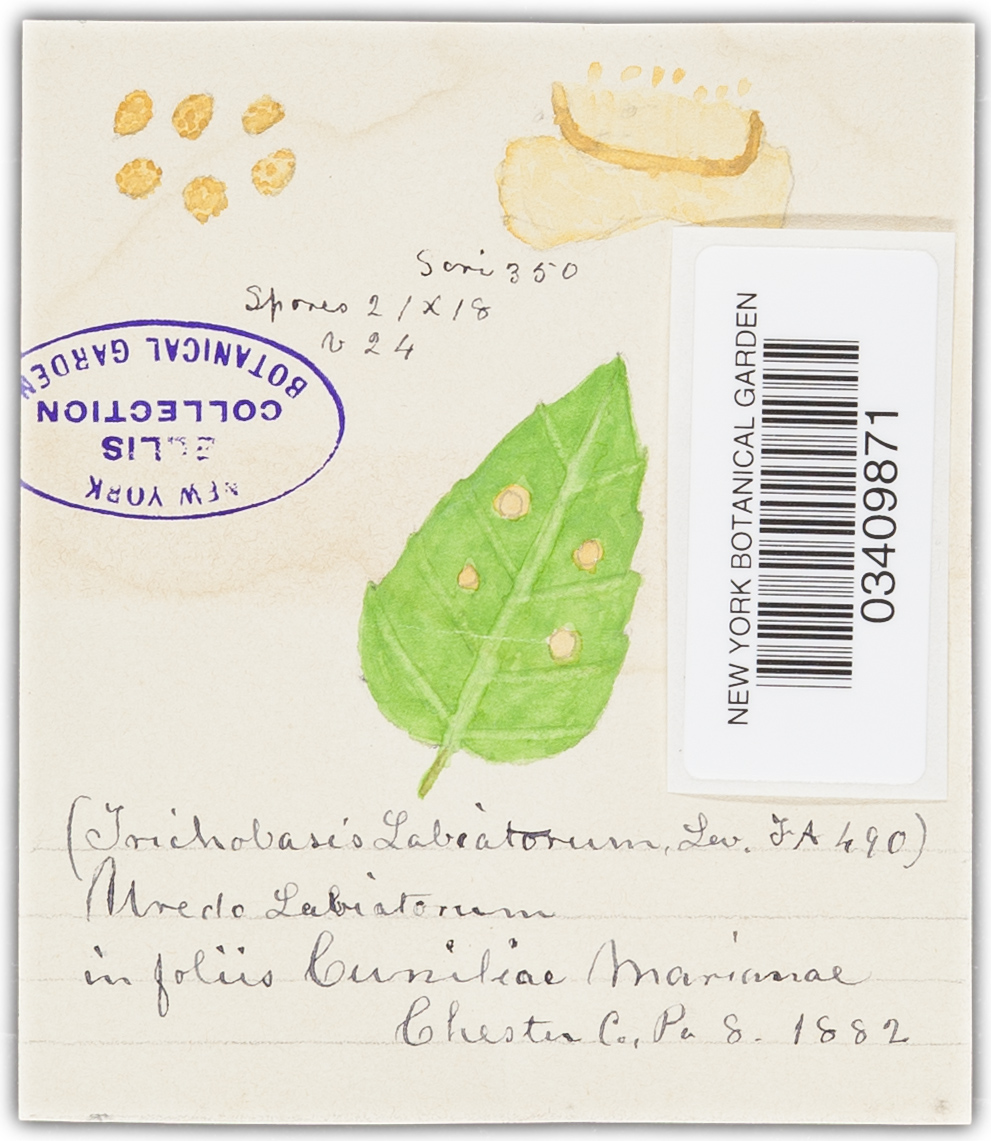 Sori 350
Spores 21 X 18
v 24
NEW YORK
ELLIS
COLLECTION
BOTANICAL GARDEN
NEW YORK BOTANICAL GARDEN
03409871
(Trichobasis Labiatorum, Lev. FA 490)
Uredo Labiatorum
in foliis Cuniliae Marianae
Chester Co, Pa 8. 1882